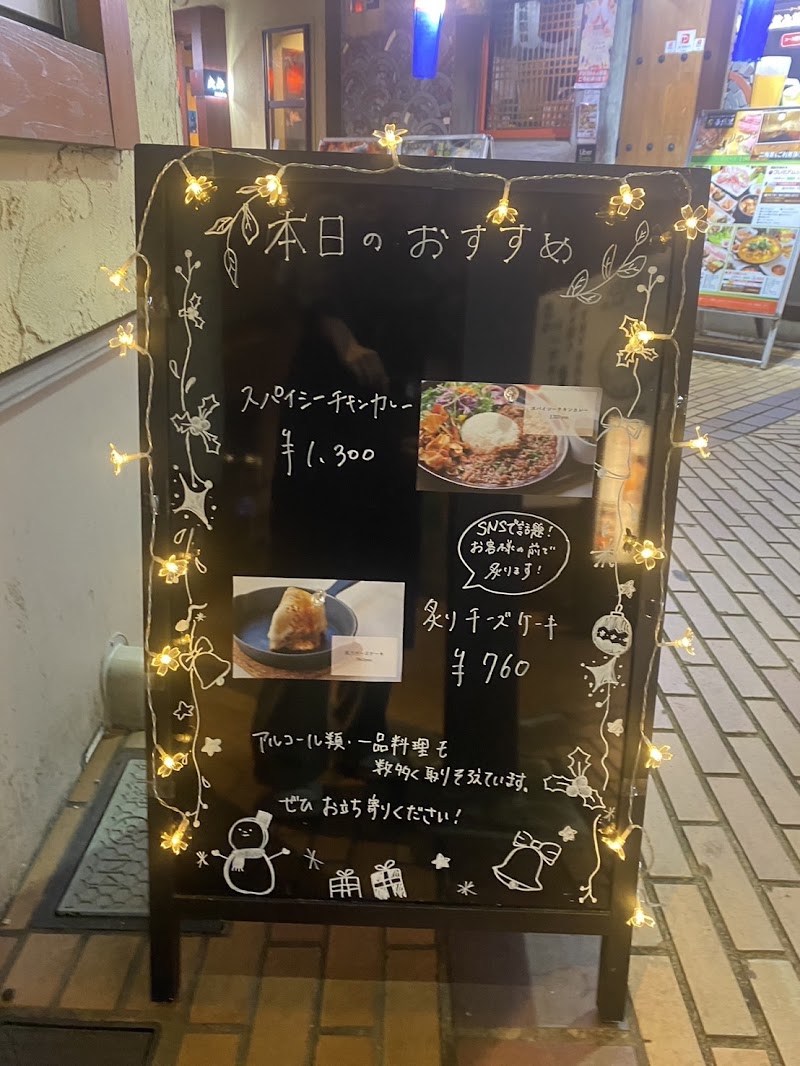 本日のおすすめ
スパイシーチキンカレー
¥1,300
スパイシーチキンカレー
SNSで話題!
お客様の前で
炙ります!
炙りチーズケーキ
¥760
炙りチーズケーキ
アルコール類・一品料理も
数多く取りそろえています。
ぜひお立ち寄りください!